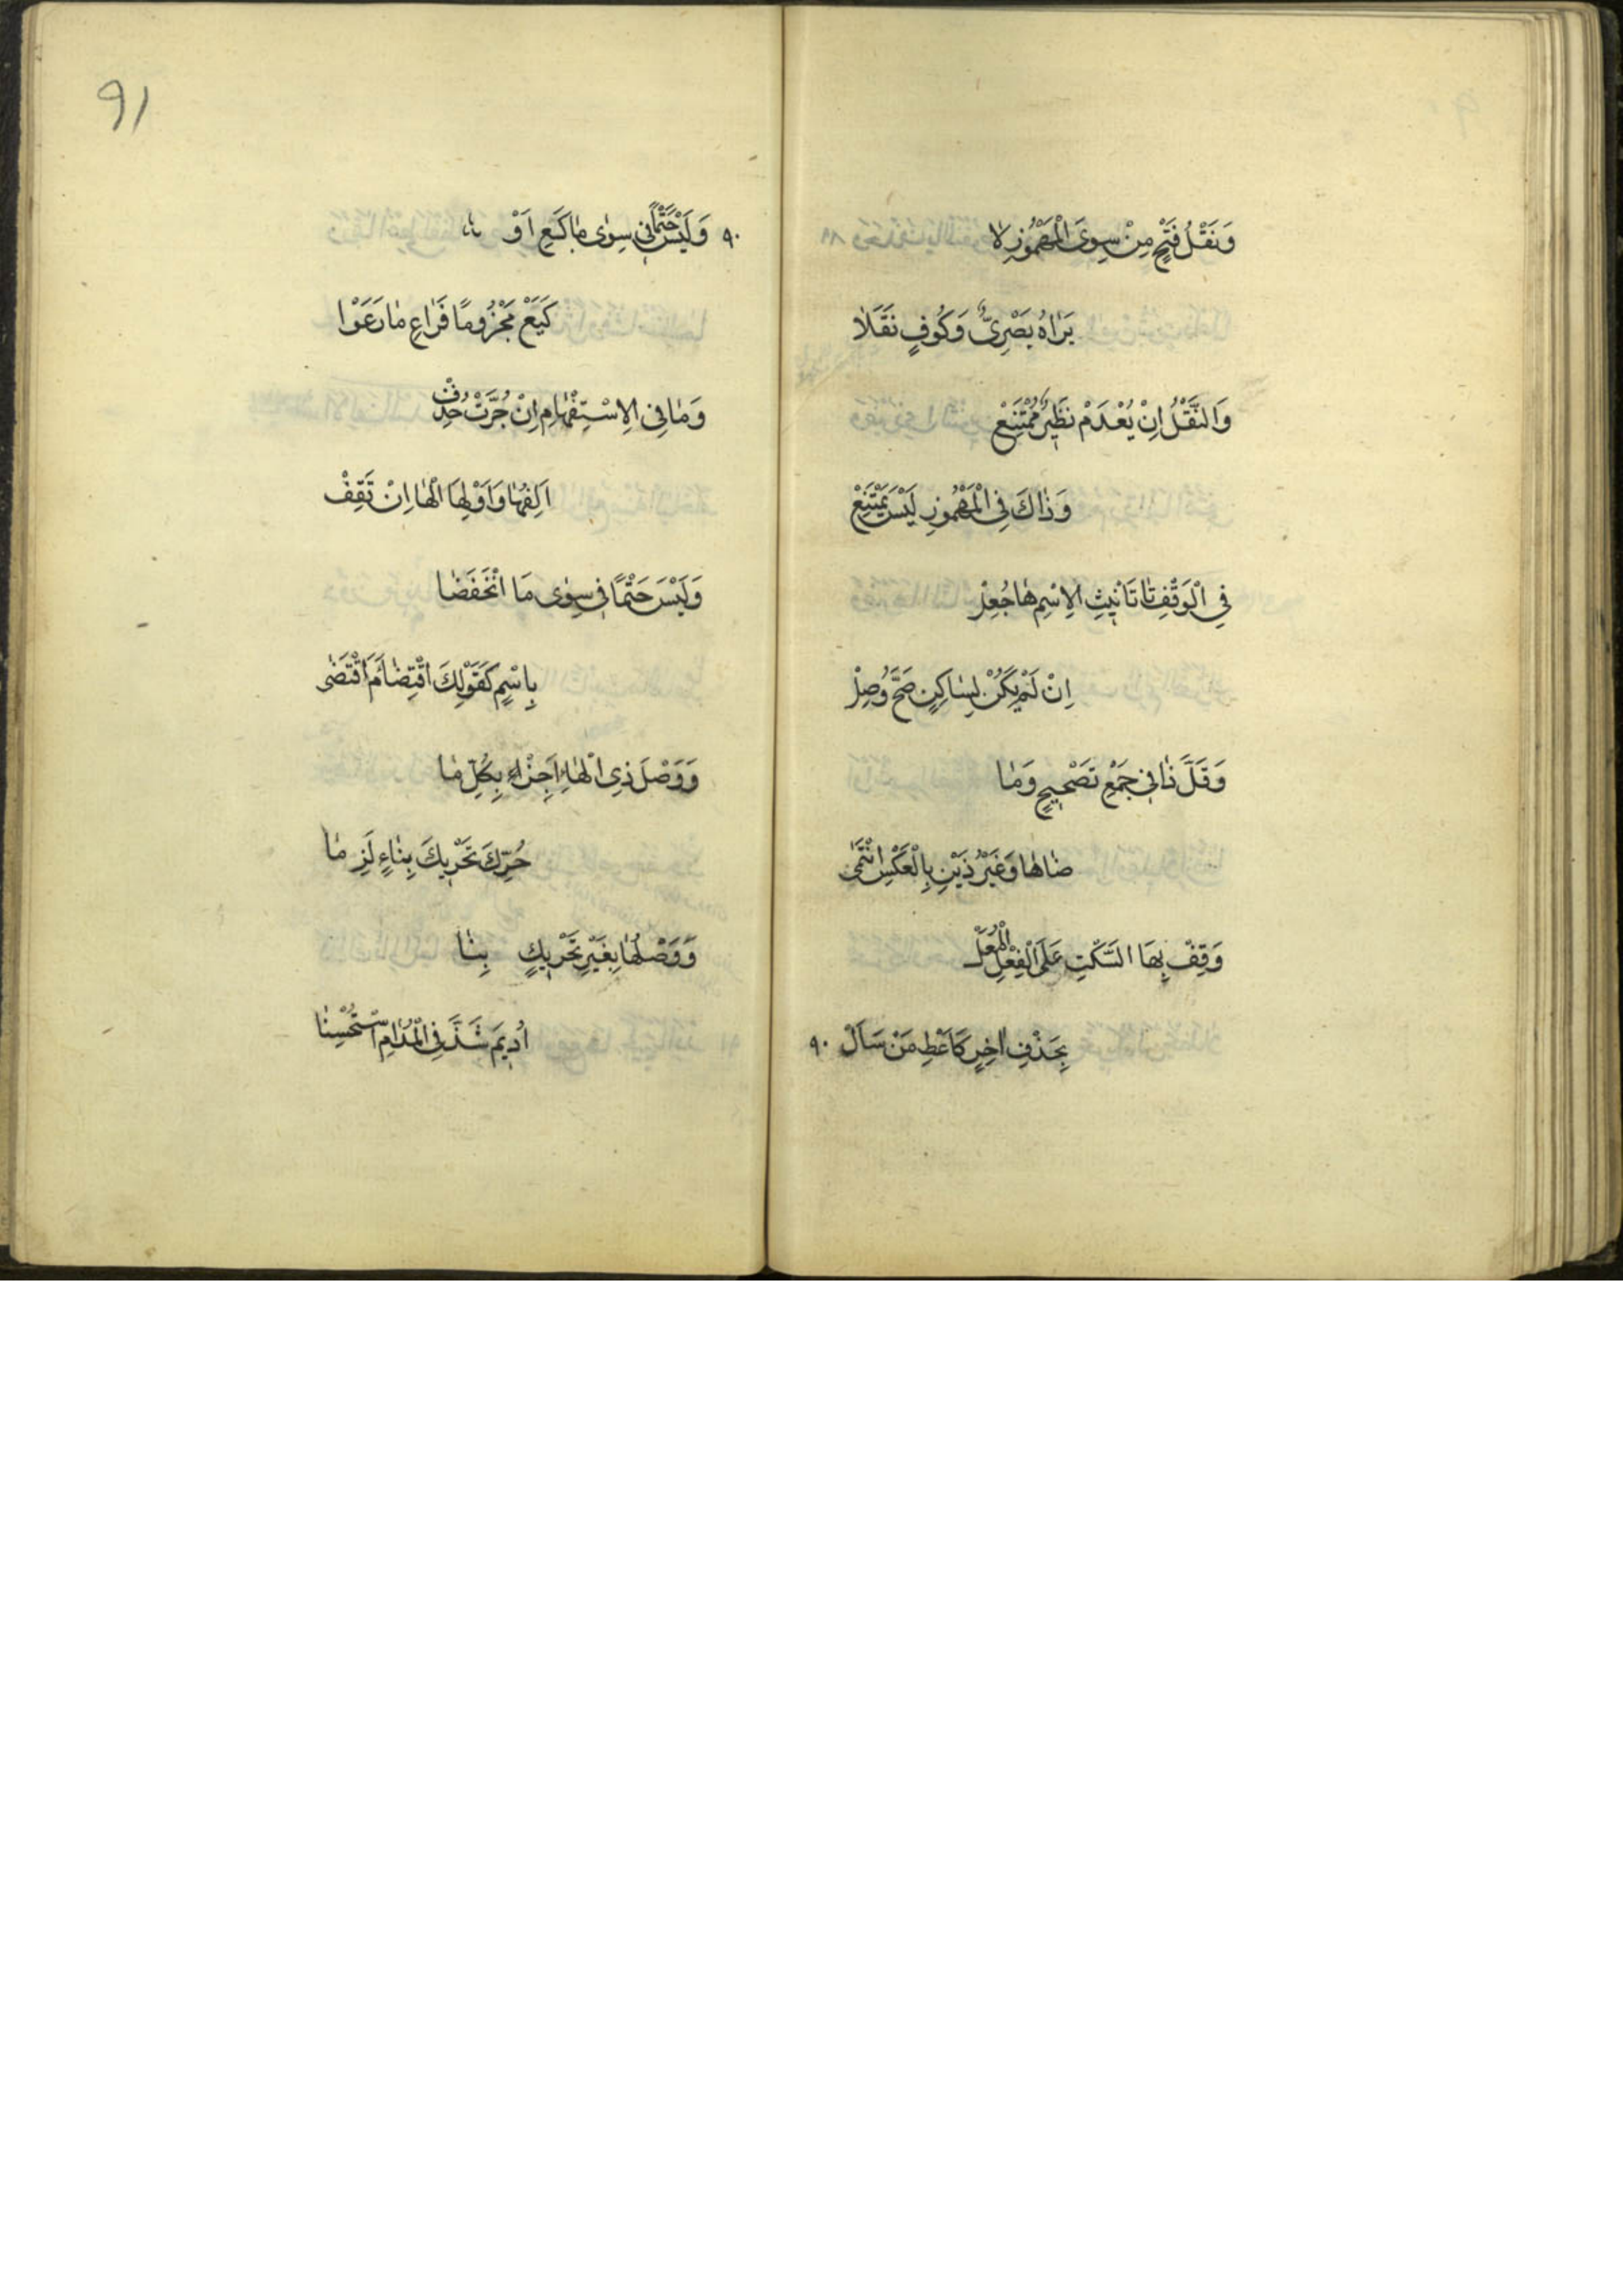 وَنَقْلُ فَتْحٍ مِنْ سِوَى الْمَهْمُوزِ لَا
يَرَاهُ بَصْرِيٌّ وَكُوفٍ نَقَلَا
وَالنَّقْلُ اِنْ يُعْدَمْ نَظِيرٌ مُمْتَنِعْ
وَذَاكَ فِي الْمَهْمُوزِ لَيْسَ يَمْتَنِعْ
فِي الْوَقْفِ تَا تَانِيثِ الِاسْمِ هَا جُعِلْ
اِنْ لَمْ يَكُنْ بِسَاكِنٍ صَحَّ وُصِلْ
وَقَلَّ ذَا فِي جَمْعِ تَصْحِيحٍ وَمَا
ضَاهَا وَغَيْرُ ذَيْنِ بِالْعَكْسِ انْتَمَى
وَقِفْ بِهَا السَّكْتِ عَلَى الْفِعْلِ الْمُعَلّْ
بِحَذْفِ اٰخِرٍ كَاَعْطِ مَنْ سَاَلْ ٩٠
٩٠ وَلَيْسَ حَتْمًا فِي سِوٰى مَا كَعِ اَوْ
كَيَعْ مَجْزُومًا فَرَاعِ مَا رَعَوْا
وَمَا فِي الِاسْتِفْهَامِ اِنْ جُرَّتْ حُذِفْ
اَلِفُهَا وَاَوْلِهَا الْهَا اِنْ تَقِفْ
وَلَيْسَ حَتْمًا فِي سِوٰى مَا انْخَفَضَا
بِاسْمٍ كَقَوْلِكَ اقْتِضَاءَ مَ اقْتَضٰى
وَوَصْلَ ذِي الْهَاءِ اَجِزْ بِكُلِّ مَا
حُرِّكَ تَحْرِيكَ بِنَاءٍ لَزِمَا
وَوَصْلُهَا بِغَيْرِ تَحْرِيكِ بِنَا
اُدِيمَ شَذَّ فِي الْمُدَامِ اسْتُحْسِنَا
91